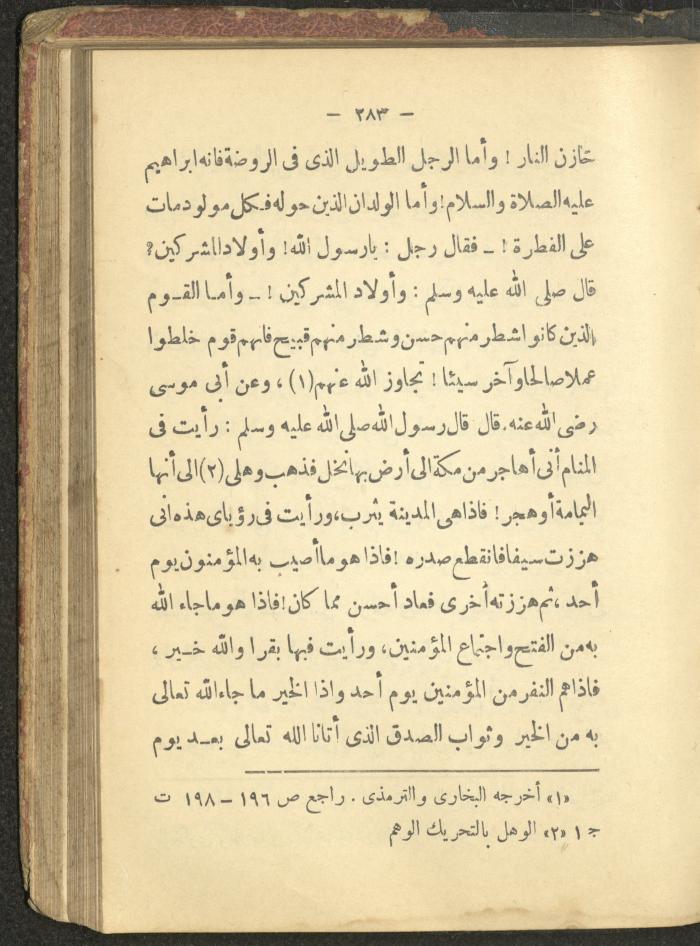 — ٢٨٣ —
خازن النار ! وأما الرجل الطويل الذى فى الروضة فانه ابراهيم
عليه الصلاة والسلام ! وأما الولدان الذين حوله فكل مولود مات
على الفطرة ! ــ فقال رجل : يارسول الله ! وأولاد المشركين ؟
قال صلى الله عليه وسلم : وأولاد المشركين ! ــ وأما القوم
الذين كانوا شطر منهم حسن وشطر منهم قبيح فانهم قوم خلطوا
عملا صالحا وآخر سيئا ! تجاوز الله عنهم (١) ، وعن أبى موسى
رضى الله عنه . قال قال رسول الله صلى الله عليه وسلم : رأيت فى
المنام أنى أهاجر من مكة الى أرض بها نخل فذهب وهلى (٢) الى أنها
اليمامة أو هجر ! فاذا هى المدينة يثرب ، ورأيت فى رؤياى هذه انى
هززت سيفا فانقطع صدره ! فاذا هو ما أصيب به المؤمنون يوم
أحد ، ثم هززته أخرى فعاد أحسن مما كان ! فاذا هو ما جاء الله
به من الفتح واجتماع المؤمنين ، ورأيت فيها بقرا والله خير ،
فاذا هم النفر من المؤمنين يوم أحد واذا الخير ما جاء الله تعالى
به من الخير وثواب الصدق الذى أتانا الله تعالى بعد يوم
«١» أخرجه البخارى والترمذى . راجع ص ١٩٦ – ١٩٨ ت
ج ١ «٢» الوهل بالتحريك الوهم